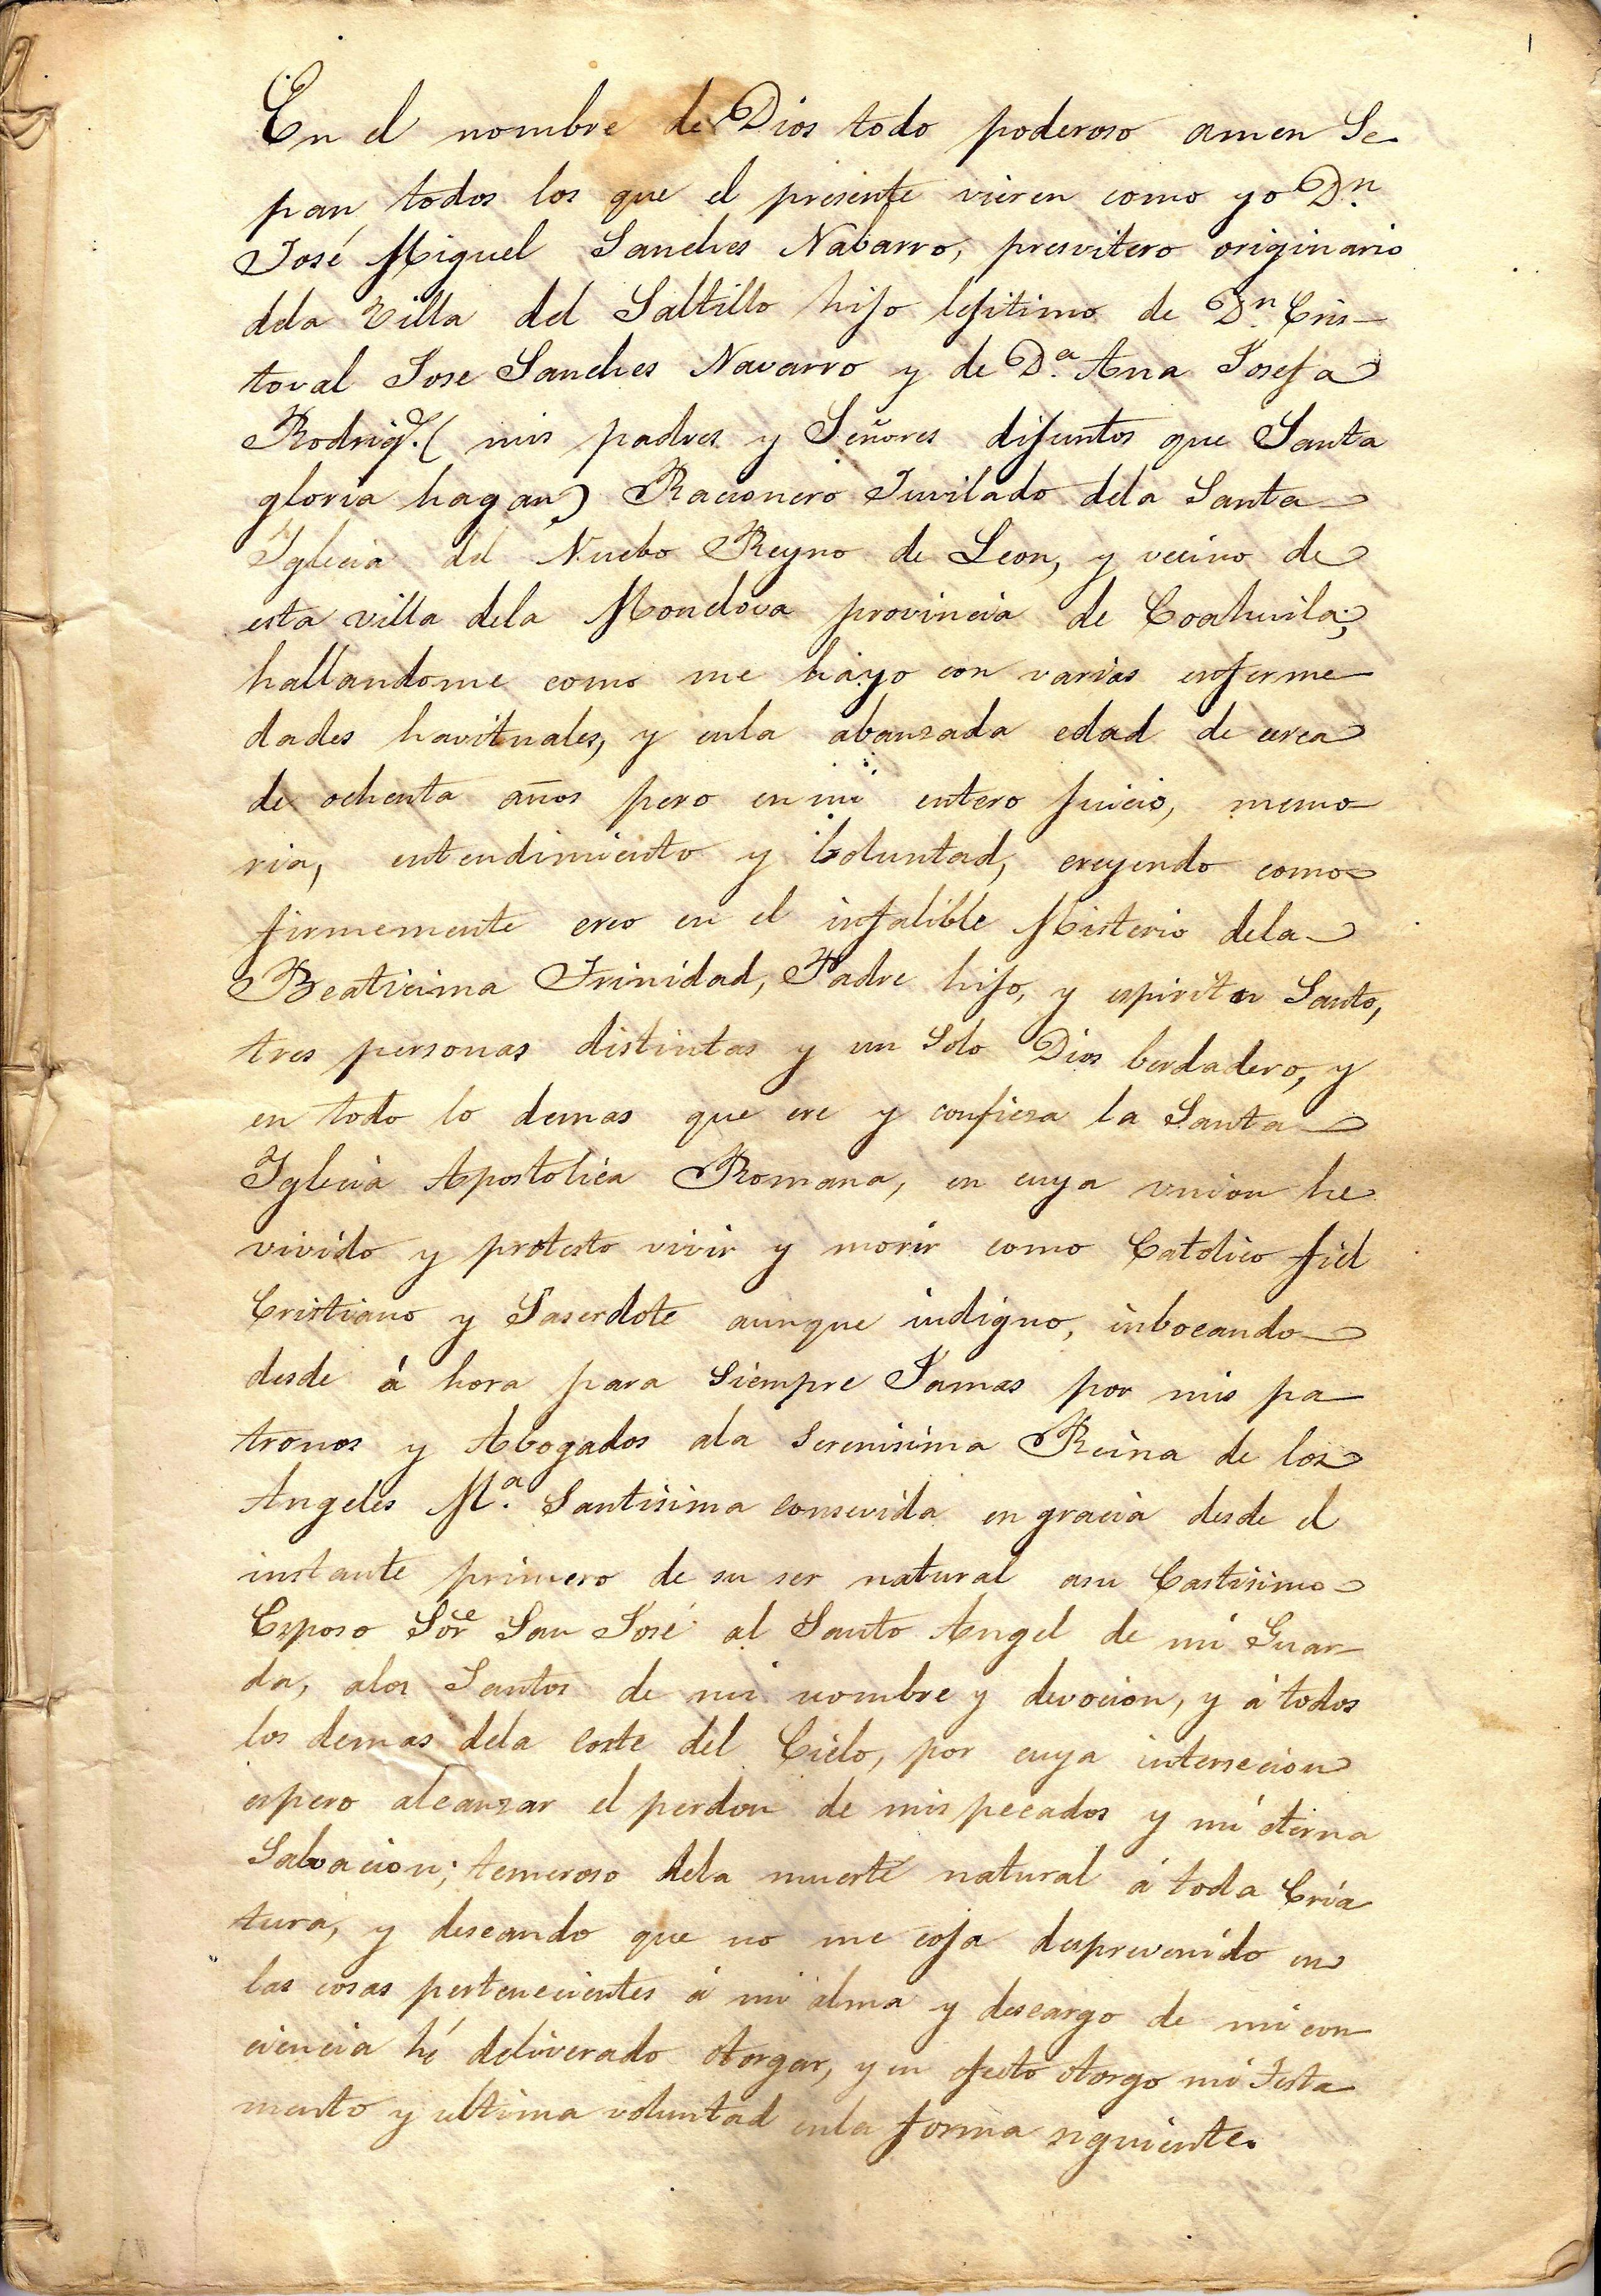 1
En el nombre de Dios todo poderoso amen Se
pan, todos los que el presente vieren como yo Dn.
José Miguel Sanches Nabarro, presvitero originario
dela Villa del Saltillo hijo lefitimo de Dn. Cris-
toval Jose Sanches Navarro y de Da. Ana Josefa
Rodrigz. ( mis padres y Señores difuntos que Santa
gloria hagan) Racionero Juvilado dela Santa
Iglecia del Nuebo Reyno de Leon, y vecino de
esta villa dela Monclova provincia de Coahuila;
hallandome como me hayo con varias enferme
dades havituales, y enla abanzada edad de cerca
de ochenta años pero en mi entero juicio, memo-
ria, entendimiento y boluntad, creyendo como
firmemente creo en el infalible Misterio dela
Beaticima Trinidad, Padre hijo, y espiritu Santo,
tres personas distintas y un Solo Dios berdadero, y
en todo lo demas que cre y confieza la Santa
Iglecia Apostolica Romana, en cuya union he
vivido y protesto vivir y morir como Catolico fiel
Cristiano y Saserdote aunque indigno, inbocando
desde á hora para Siempre Jamas por mis pa-
tronos y Abogados ala Serenisima Reina de los
Angeles Ma. Santisima consevida en gracia desde el
instante primero de su ser natural asu Castisimo
Esposo Sor. San José al Santo Angel de mi Guar-
da, alos Santos de mi nombre y devocion, y á todos
los demas dela Corte del Cielo, por cuya intersecion
espero alcanzar el perdon de mis pecados y mi eterna
Salvacion; temeroso dela muerte natural á toda Cria
tura, y deseando que no me coja desprevenido en
las cosas pertenecientes á mi alma y descargo de mi con
ciencia hé deliverado otorgar, y en efecto otorgo mi Testa
mento y ultima voluntad enla forma siguiente.